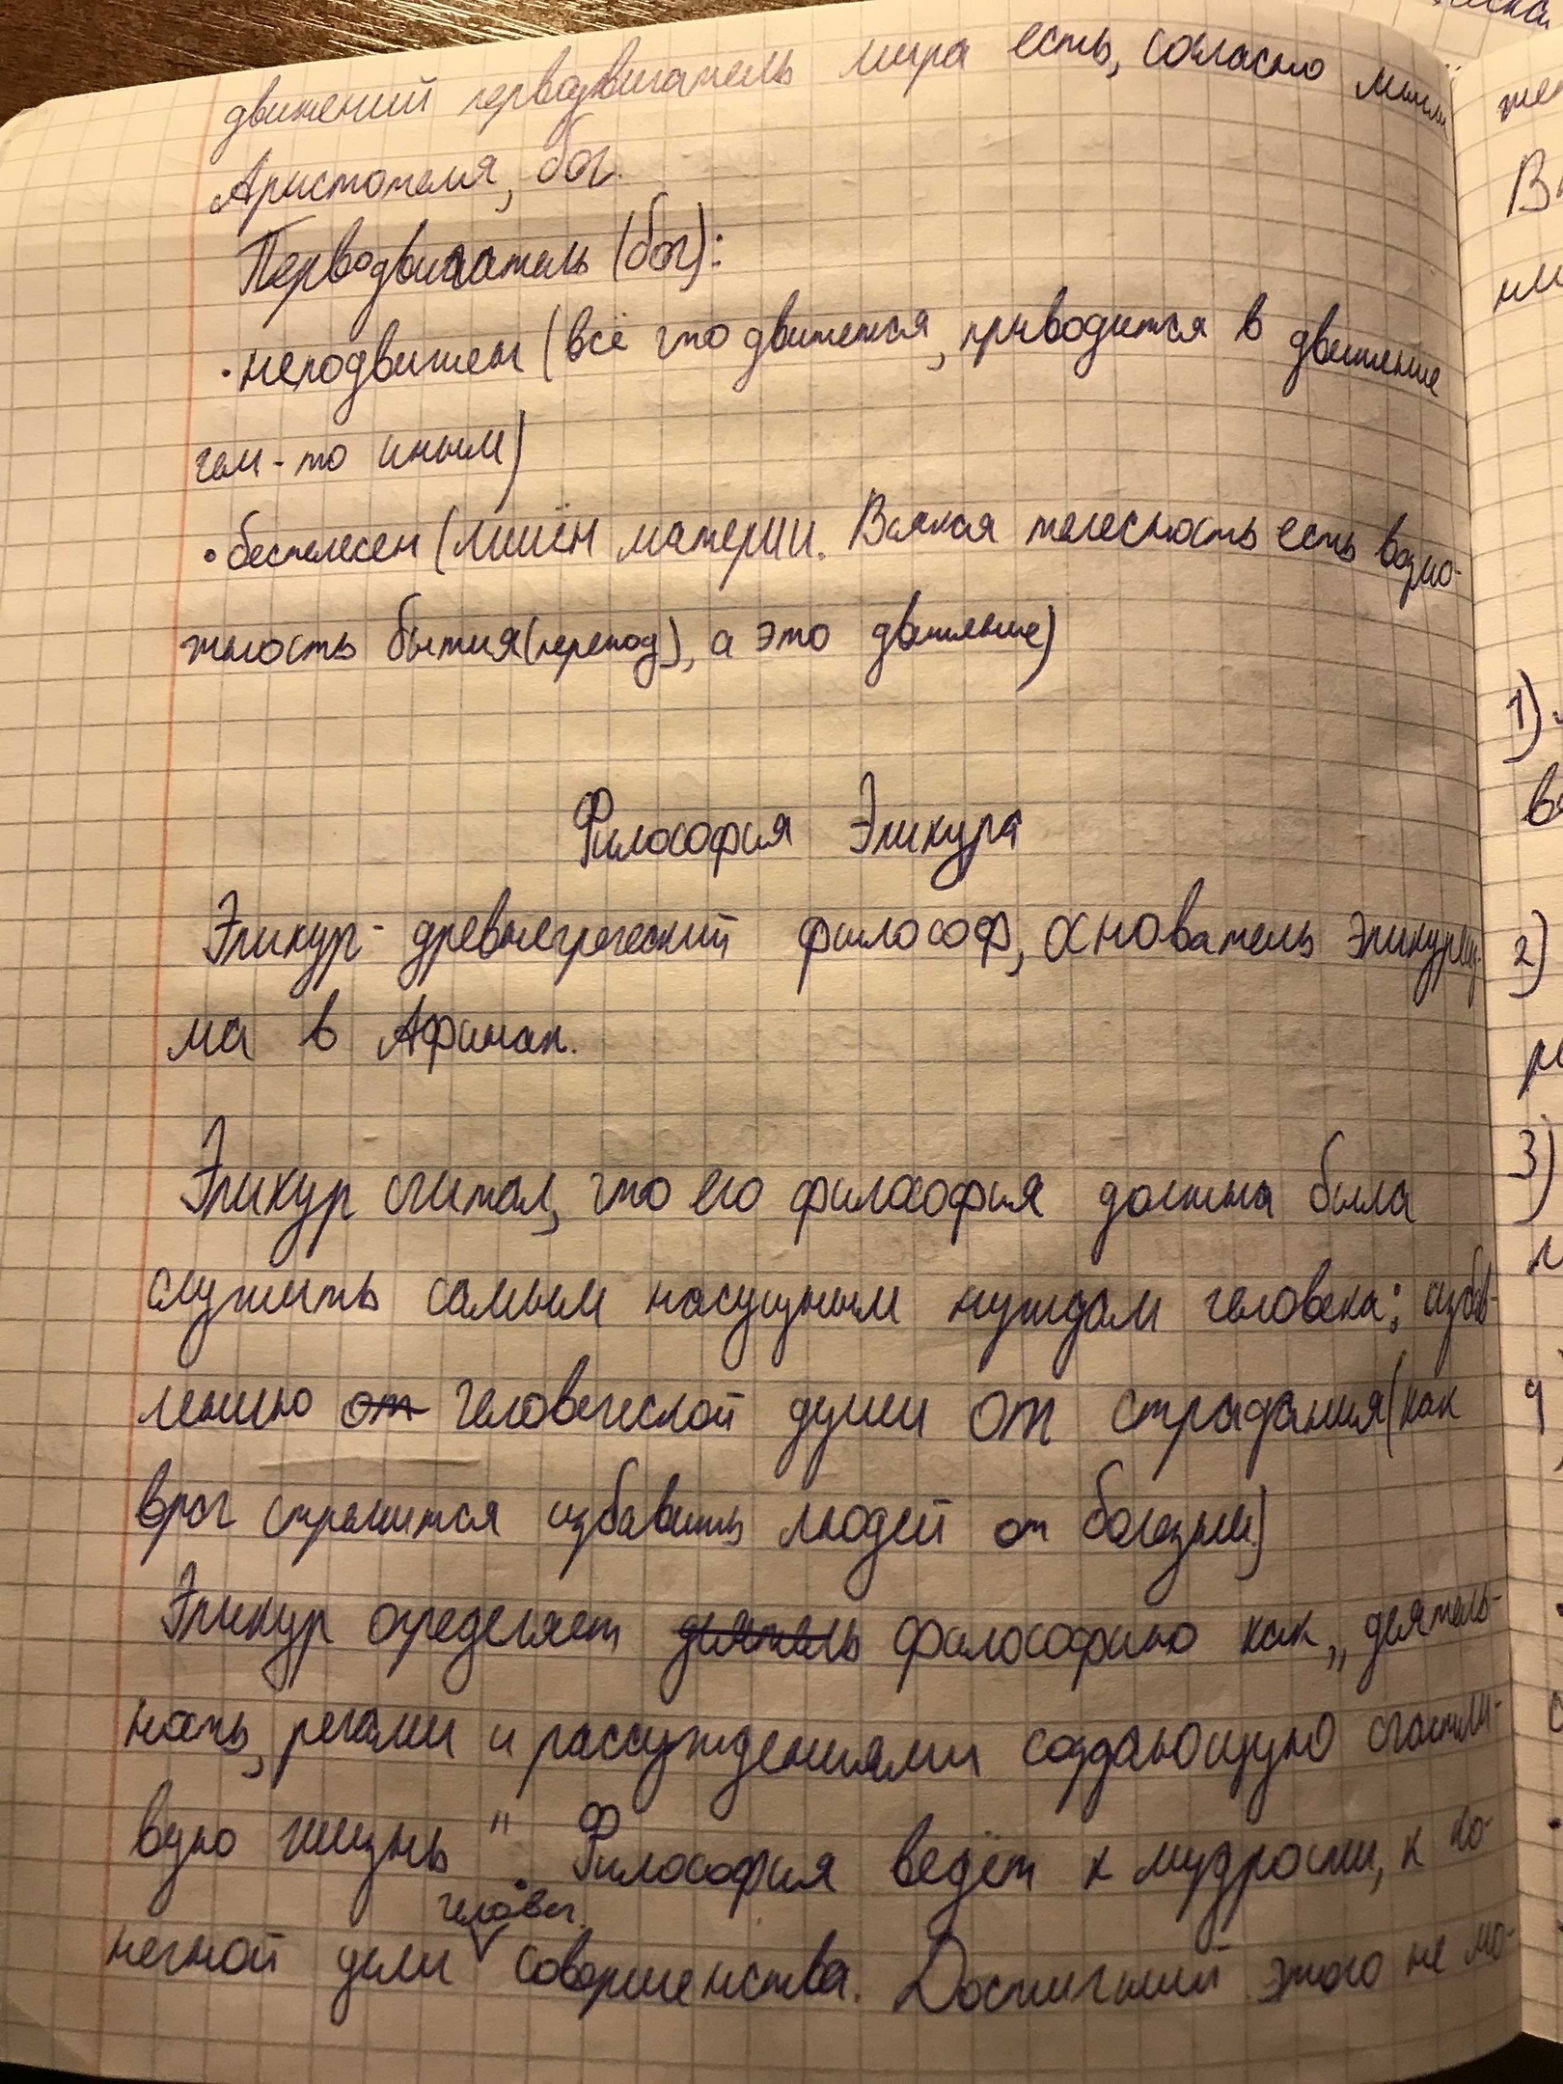 движений перводвигатель мира есть, согласно мысли
Аристотеля, бог.
Перводвигатель (бог):
• неподвижен (всё что движется, приводится в движение
чем-то иным)
• бестелесен (лишён материи. Всякая телесность есть возмо-
жность бытия(переход), а это движение)
Философия Эпикура
Эпикур - древнегреческий философ, основатель эпикуреиз-
ма в Афинах.
Эпикур считал, что его философия должна была
служить самым насущным нуждам человека: избав-
лению от человеческой души от страдания(как
врач стремится избавить людей от болезни)
Эпикур определяет деятель философию как „деятель-
ность, речами и рассуждениями создающую счастли-
вую жизнь". Философия ведёт к мудрости, к ко-
нечной цели человеч. совершенства. Достигший этого не мо-
1)
2)
3)